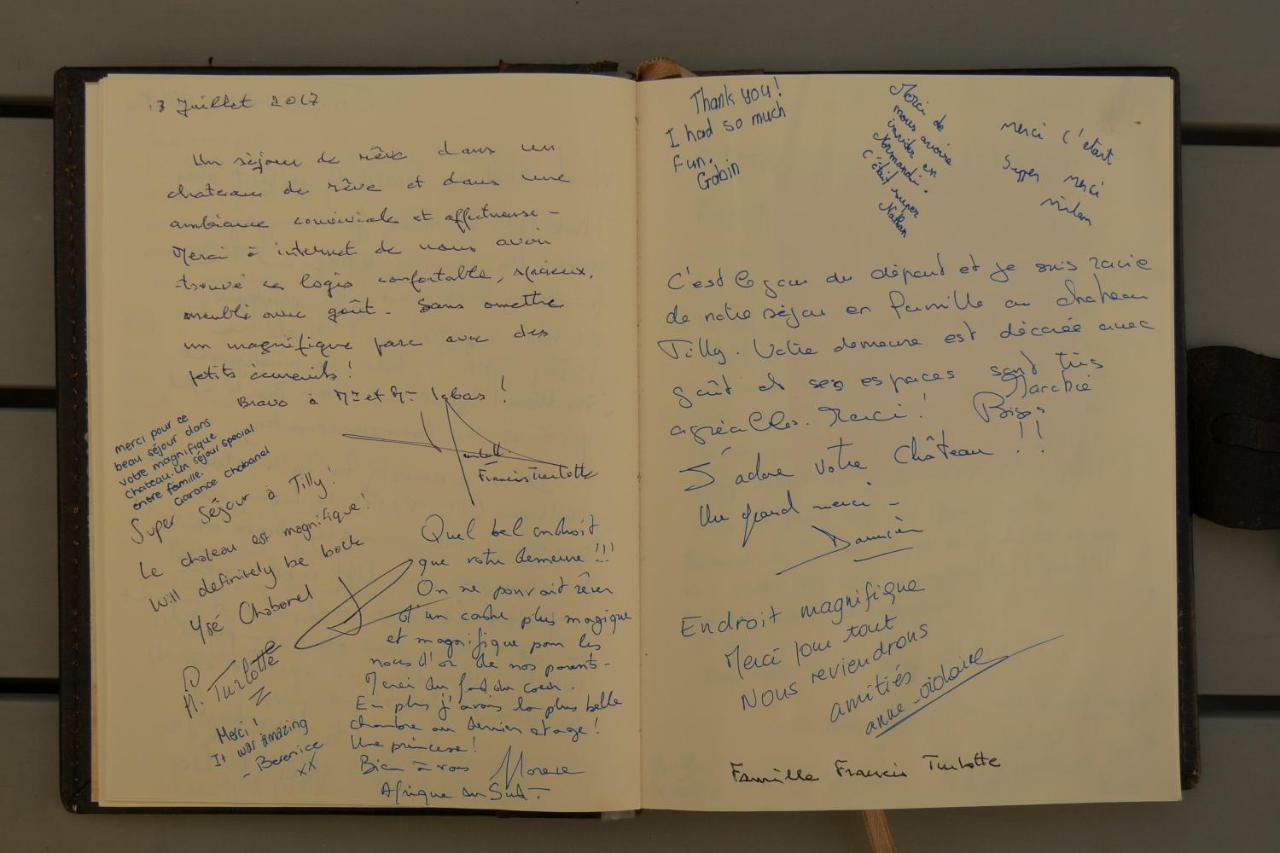 3 Juillet 2017
Un séjour de rêve dans un
chateau de rêve et dans une
ambiance conviviale et affectueuse -
Merci à internet de nous avoir
trouvé ce logis confortable, spacieux,
meublé avec goût - Sans omettre
un magnifique parc avec des
petits écureuils !
Bravo à Mme et Mr
Francis Turlotte
merci pour ce
beau séjour dans
votre magnifique
chateau. Un séjour special
entre famille.
Garance Chabanel
Super Séjour à Tilly !
Le chateau est magnifique !
Will definitely be back
Ysé Chabanel
A. Turlotte
Merci !
It was amazing
- Berenice
xx
Quel bel endroit
que votre demeure !!!
On ne pouvait rêver
d'un cadre plus magique
et magnifique pour les
noces d'or de nos parents -
Merci du fond du coeur.
En plus j'avais la plus belle
chambre au dernier etage !
Une princesse !
Bien à vous Florence
Afrique du Sud -
Thank you !
I had so much
fun.
Gabin
Merci de
nous avoire
inviter en
Normandi.
C'était super
Nathan
merci c'etait
Supper merci
milan
C'est le jour du départ et je suis ravie
de notre séjour en famille au chateau
Tilly. Votre demeure est décorée avec
goût et ses espaces sont très
agréables. Merci ! Bises
J'adore votre Château !!
Un grand merci -
Damien
Endroit magnifique
Merci pour tout
Nous reviendrons
amitiés
anne-violaine
Famille Francis Turlotte